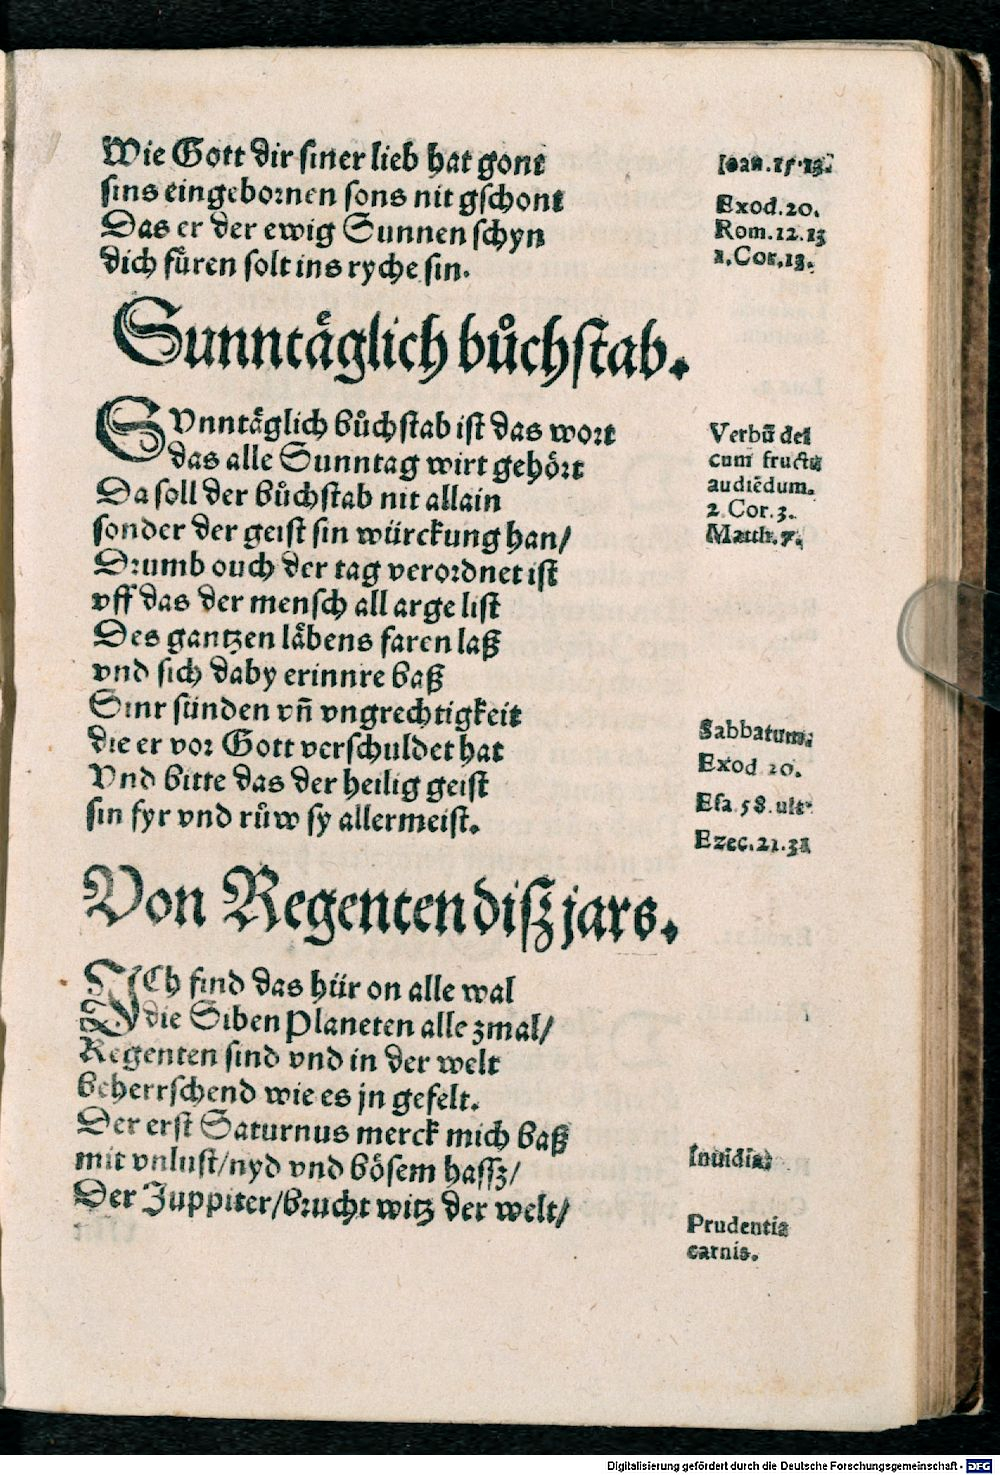 Wie Gott dir siner lieb hat gont
sins eingebornen sons nit gschont
Das er der ewig Sunnen schyn
dich füren solt ins ryche sin.
Joan.15.13.
Exod.20.
Rom.12.13
1.Cor.13.
Sunntäglich bůchstab.
SVnntäglich bůchstab ist das wort
das alle Sunntag wirt gehört
Da soll der bůchstab nit allain
sonder der geist sin würckung han/
Drumb ouch der tag verordnet ist
vff das der mensch all arge list
Des gantzen läbens faren laß
vnd sich daby erinnre baß
Sinr sünden vñ vngrechtigkeit
die er vor Gott verschuldet hat
Vnd bitte das der heilig geist
sin fyr vnd růw sy allermeist.
Verbū dei
cum fructu
audiēdum.
2.Cor.3.
Matth.7.
Sabbatum.
Exod.20.
Esa.58.ult.
Ezec.21.31
Von Regenten diß jars.
ICh find das hür on alle wal
die Siben Planeten alle zmal/
Regenten sind vnd in der welt
beherrschend wie es jn gefelt.
Der erst Saturnus merck mich baß
mit vnlust/nyd vnd bösem hassz/
Der Juppiter/brucht witz der welt/
Inuidia)
Prudentia
carnis.
Digitalisierung gefördert durch die Deutsche Forschungsgemeinschaft - DFG